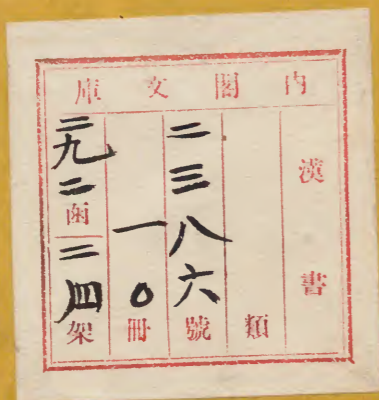 内閣文庫
漢書
類
二三八六號
一〇冊
二九二函二四架